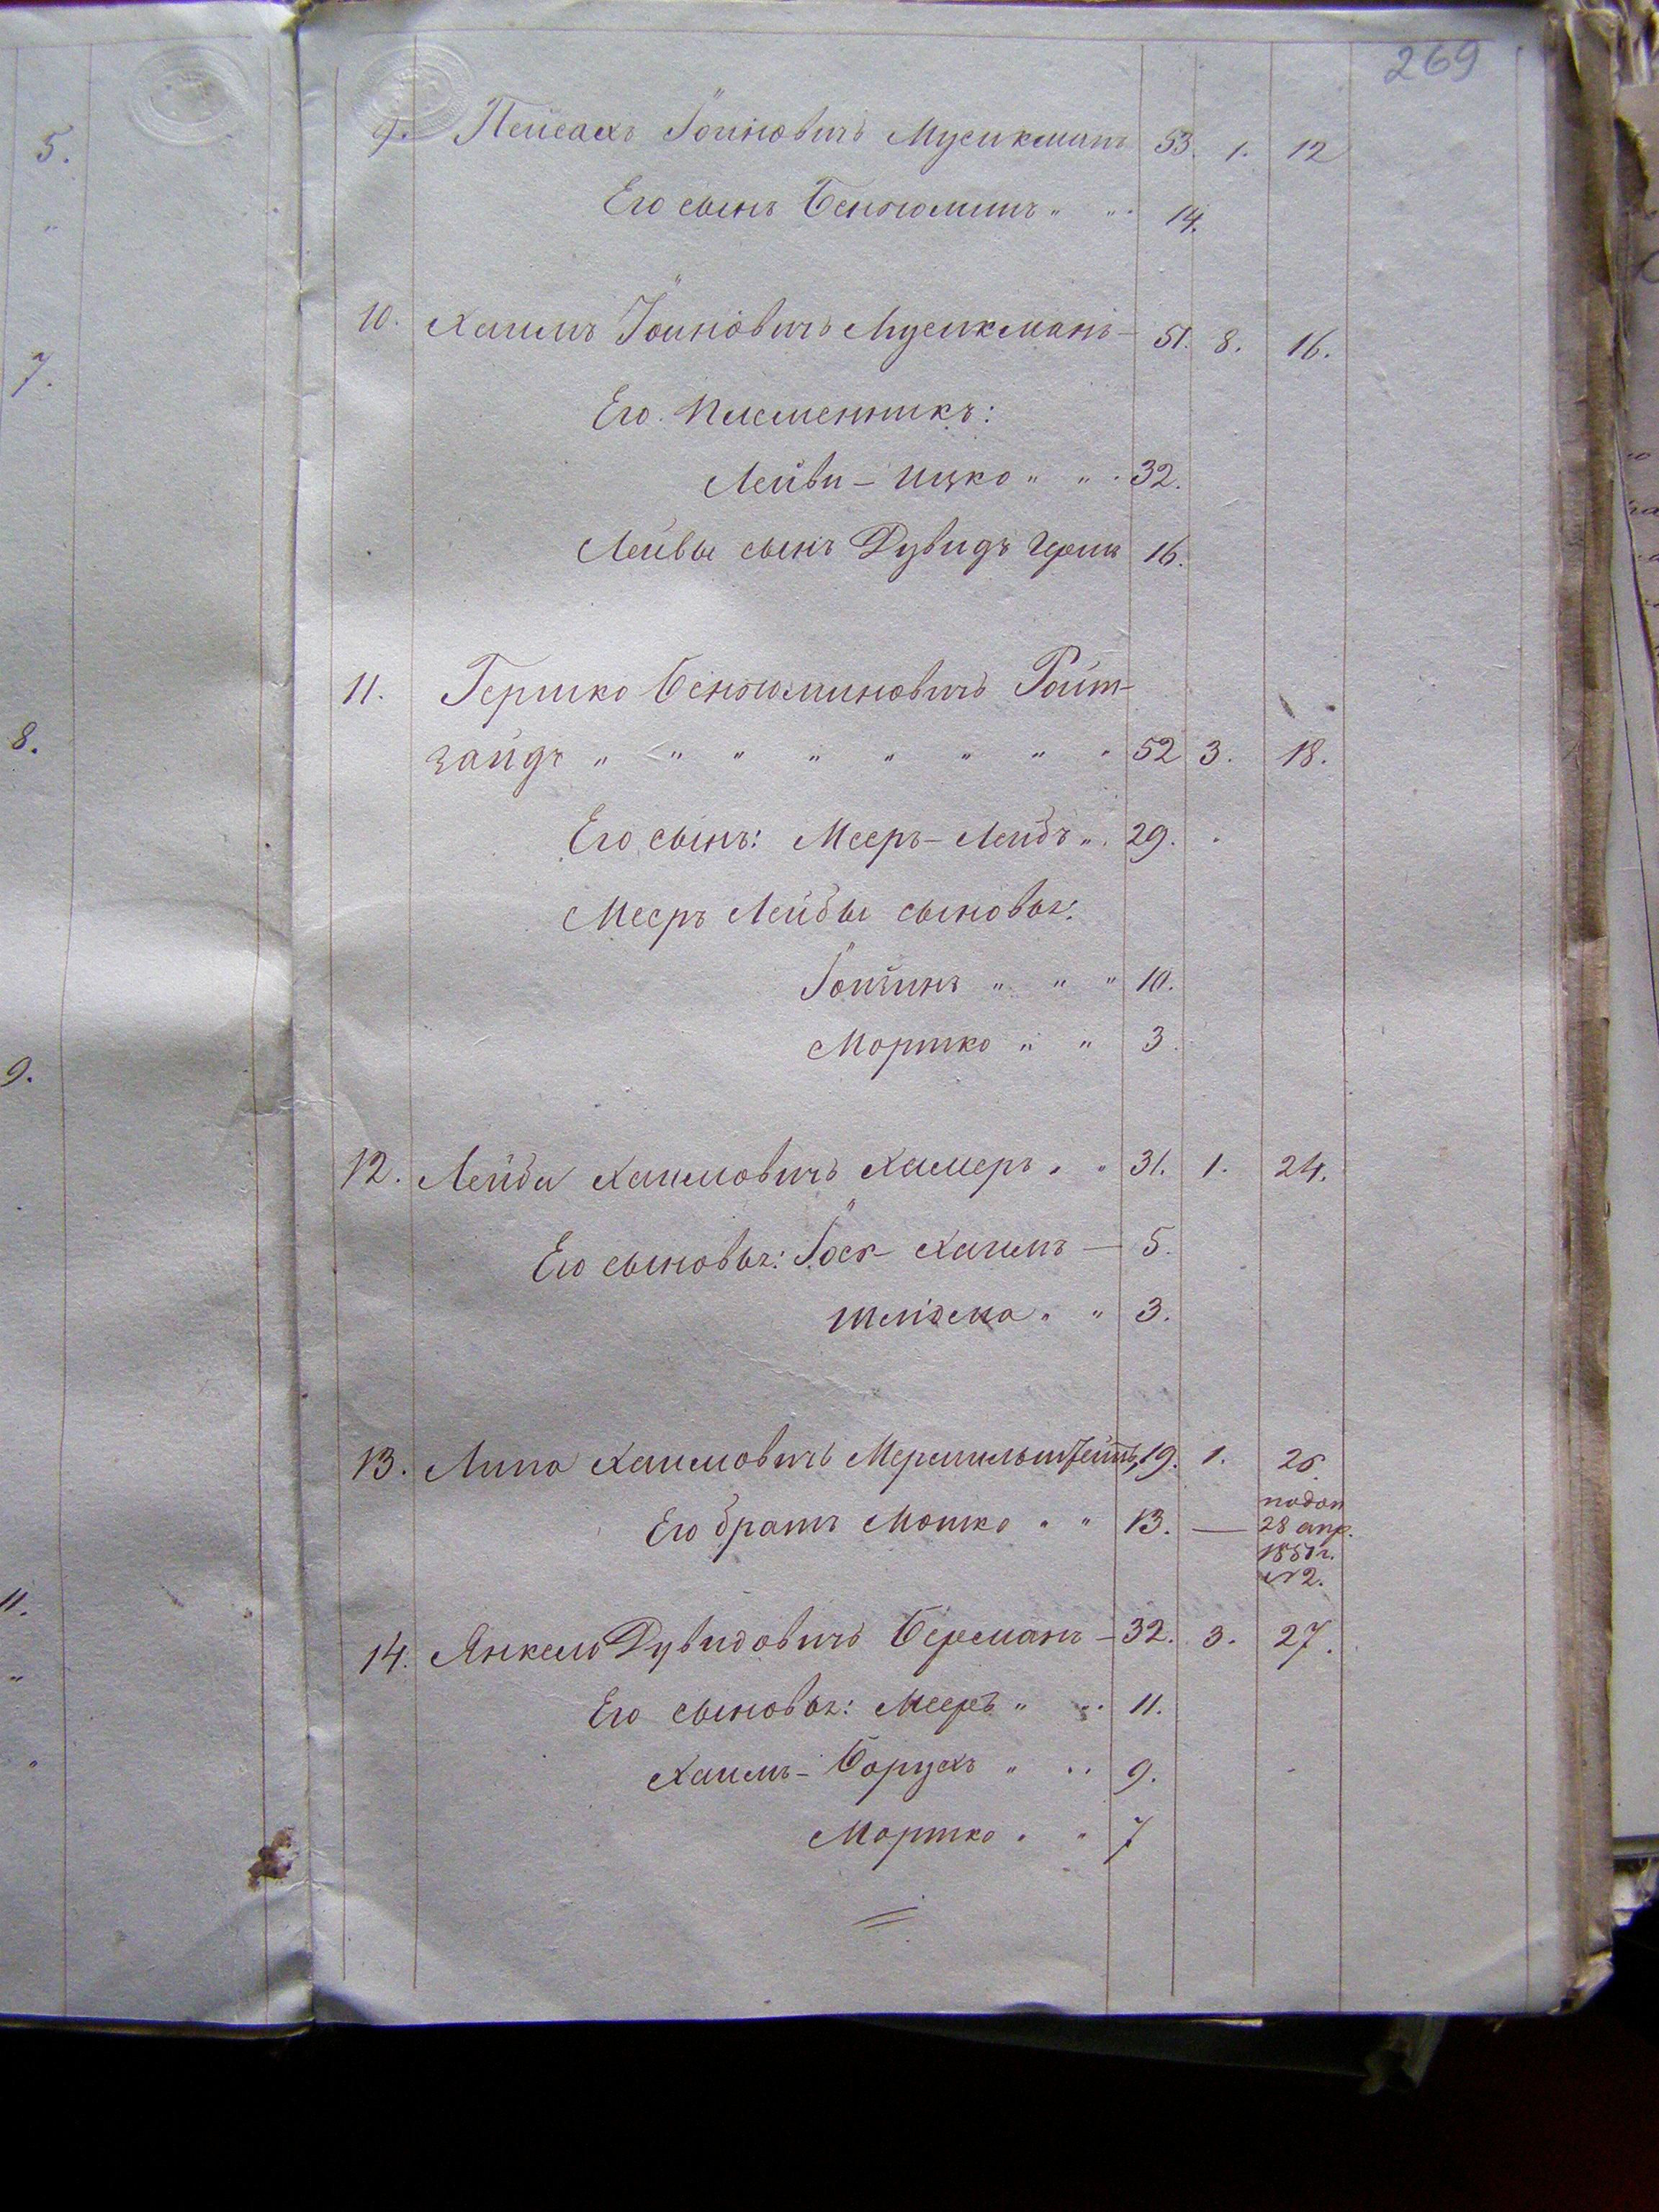 269
5.
"
7.
8.
9.
11.
"
"
9. Пейсахъ Іоиновичъ Мусикманъ 53. 1. 12
Его сынъ Беніоминъ " " 14.
10. Хаимъ Іоиновичъ Мусикманъ – 51. 8. 16.
Его племенникъ:
Лейви – Ицко " " 32.
Лейвы сынъ Дувидъ Герш 16.
11. Гершко Беніоминовичъ Ройт-
зайдъ " " " " " " " " 52 3. 18.
Его сынъ: Мееръ – Лейбъ " 29.
Мееръ Лейбы сыновья:
" " " 10.
Мортко " " 3.
12. Лейба Хаимовичъ Хамеръ " " 31. 1. 24.
Его сыновья: Іось Хаимъ – 5.
Шліома " " 3.
13. Липа Хаимовичъ 19. 1. 26.
Его братъ Мошко " " 13. — подан
28 апр.
1851 г.
№ 2.
14. Янкель Дувидовичъ Берманъ – 32. 3. 27.
Его сыновья: Мееръ " " 11.
Хаимъ – Борухъ " " 9.
Мортко " " 7